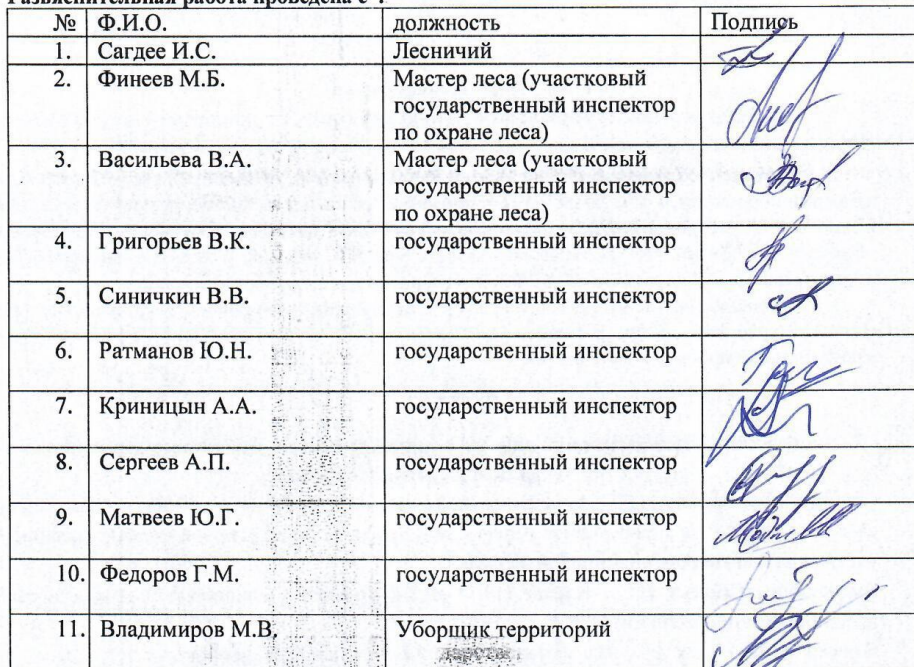 Разъяснительная работа проведена с
№ Ф.И.О. должность Подпись
1. Сагдее И.С. Лесничий
2. Финеев М.Б. Мастер леса (участковый
государственный инспектор
по охране леса)
3. Васильева В.А. Мастер леса (участковый
государственный инспектор
по охране леса)
4. Григорьев В.К. государственный инспектор
5. Синичкин В.В. государственный инспектор
6. Ратманов Ю.Н. государственный инспектор
7. Криницын А.А. государственный инспектор
8. Сергеев А.П. государственный инспектор
9. Матвеев Ю.Г. государственный инспектор
10. Федоров Г.М. государственный инспектор
11. Владимиров М.В. Уборщик территорий